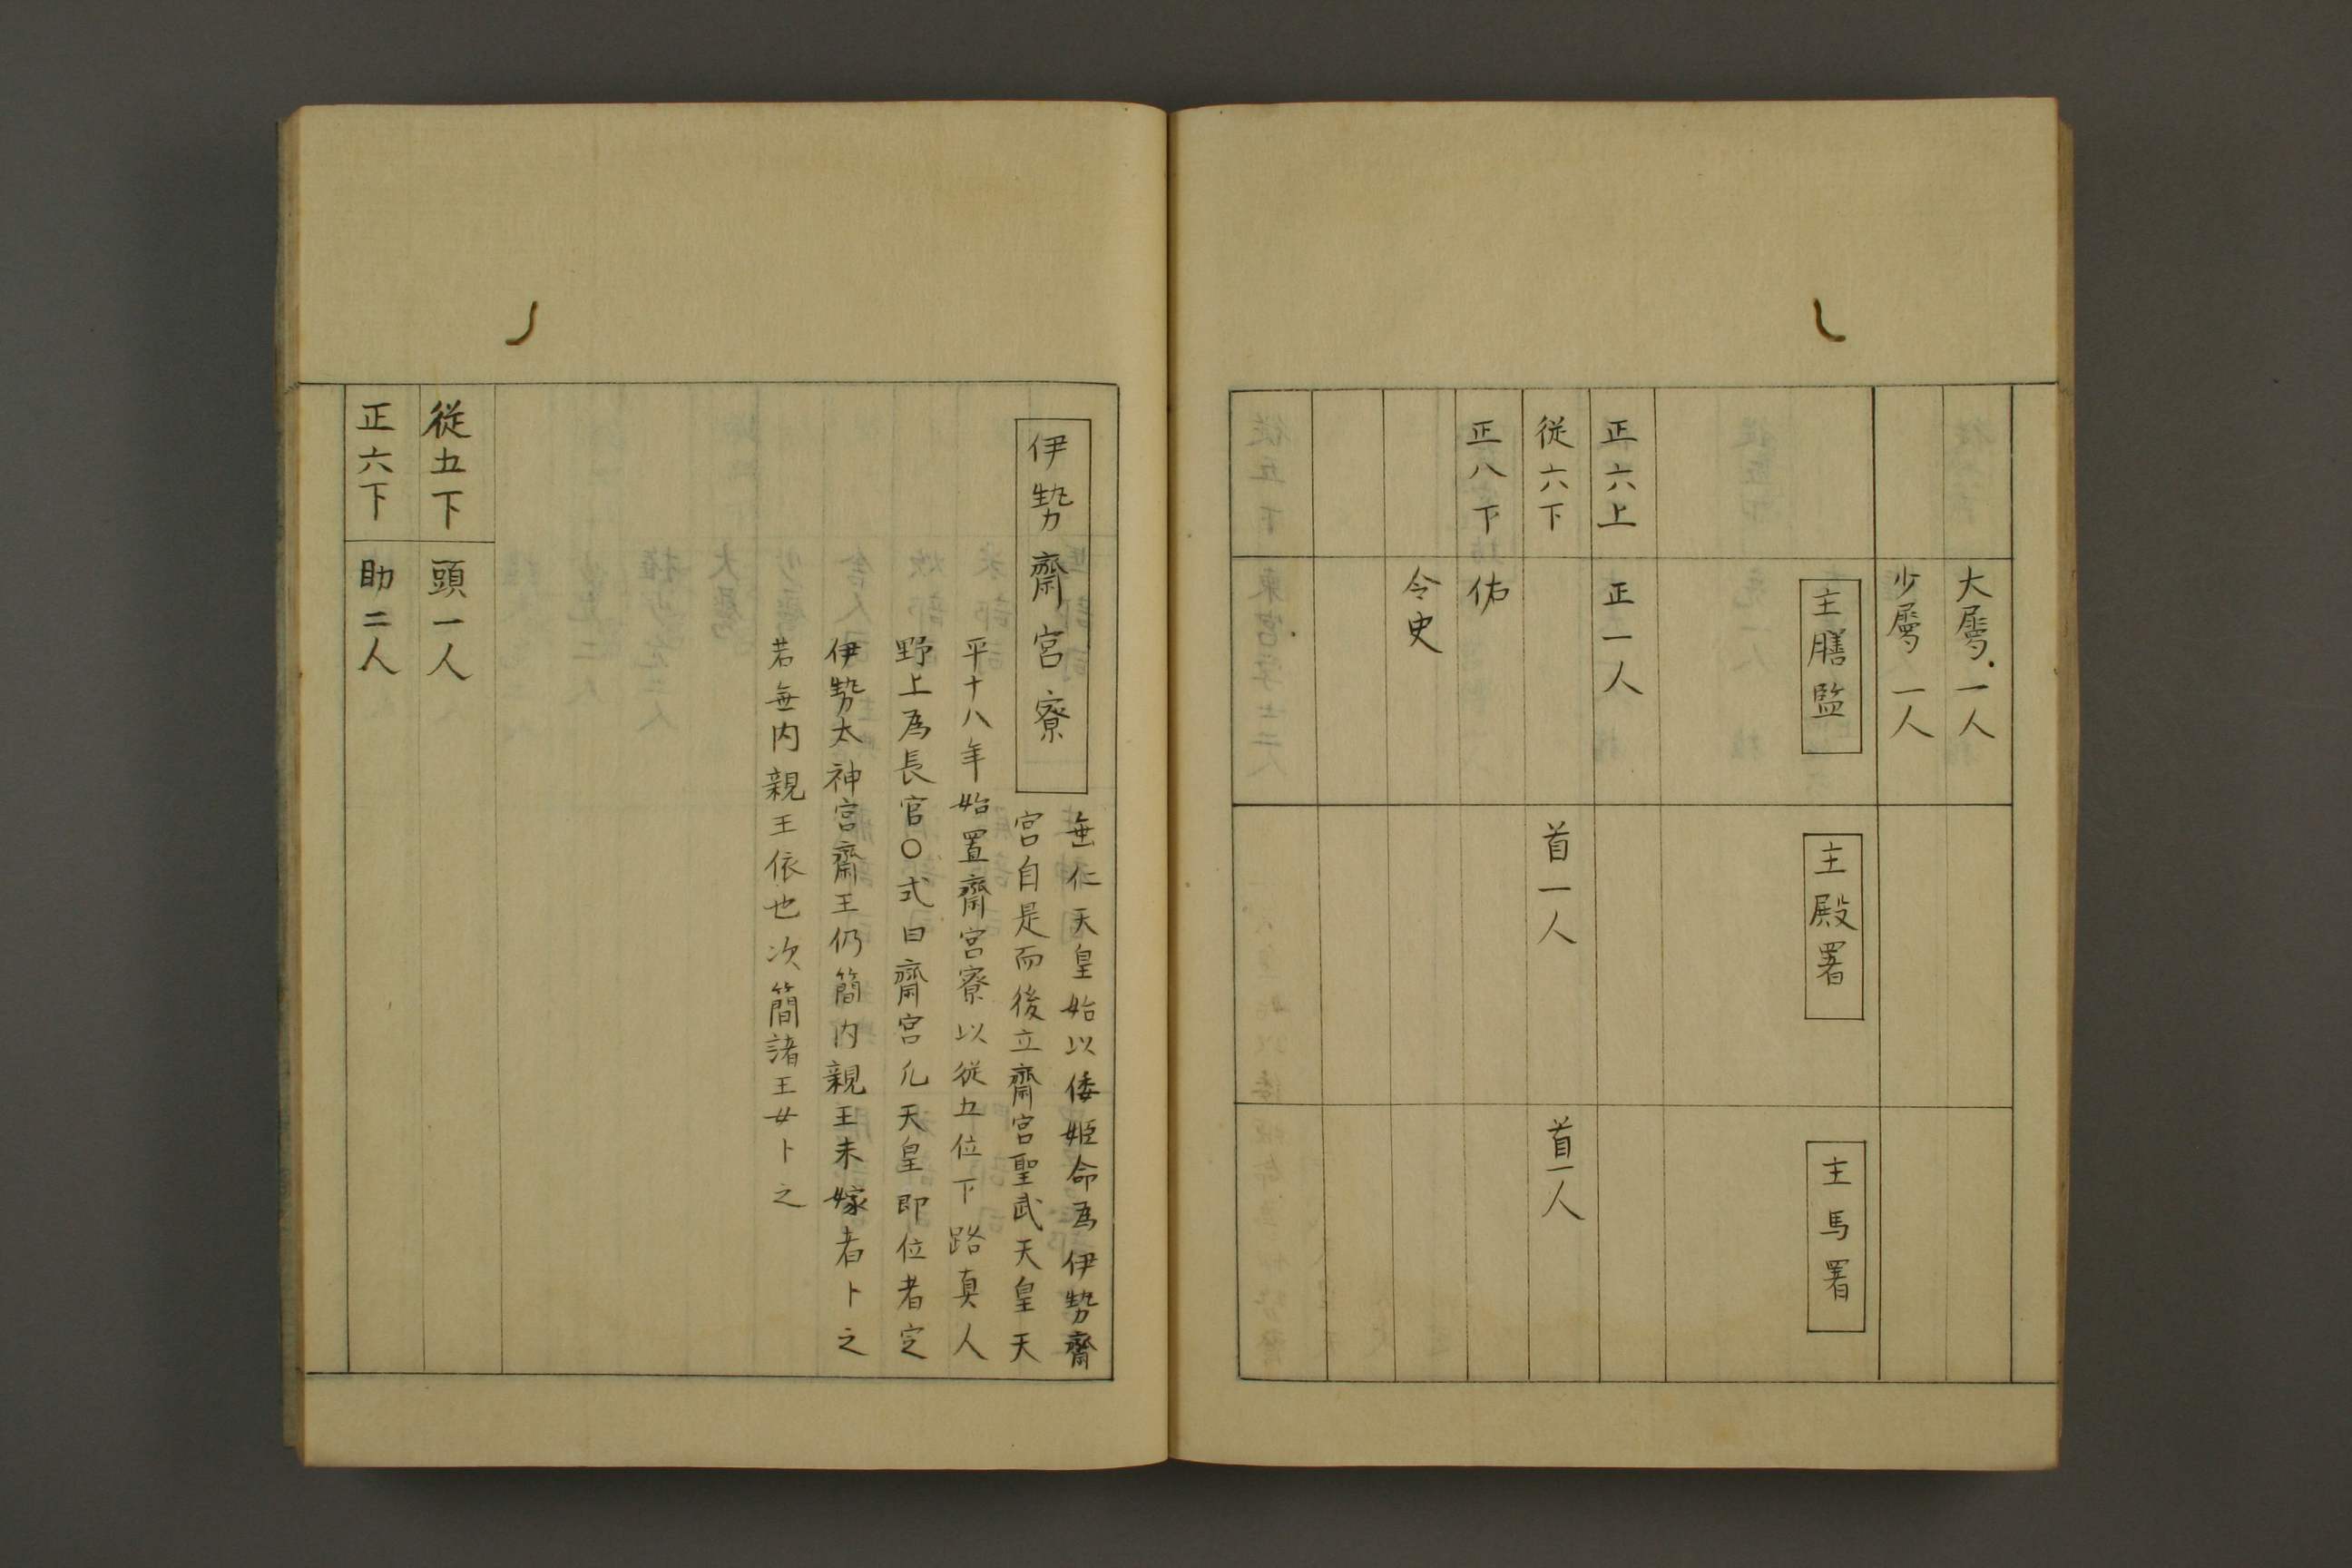 大属一人
少属一人
主膳監
主殿署
主馬署
正六上
正一人
従六下
首一人
首一人
正八下
佑
令史
伊勢齋宮寮
垂仁天皇始以倭姫命為伊勢齋
宮自是而後立齋宮聖武天皇天
平十八年始置齋宮寮以従五位下路真人
野上為長官〇式曰齋宮凢天皇即位者定
伊勢太神宮齋王仍簡内親王未嫁者卜之
若無内親王依也次簡諸王女卜之
従五下
頭一人
正六下
助二人